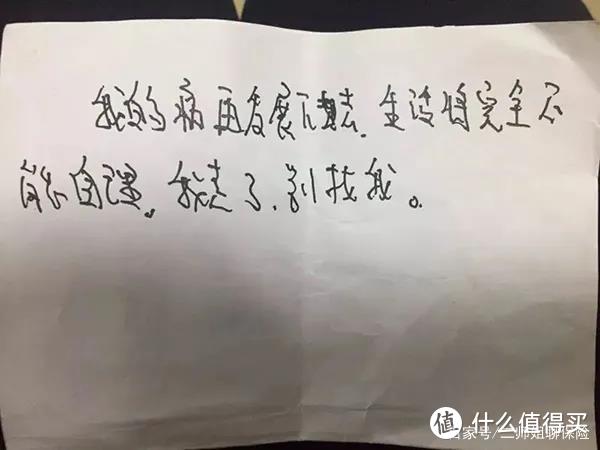 我的病再发展下去,生活将完全不
能自理。我走了,别找我。
值 什么值得买
百家号/二师姐聊保险